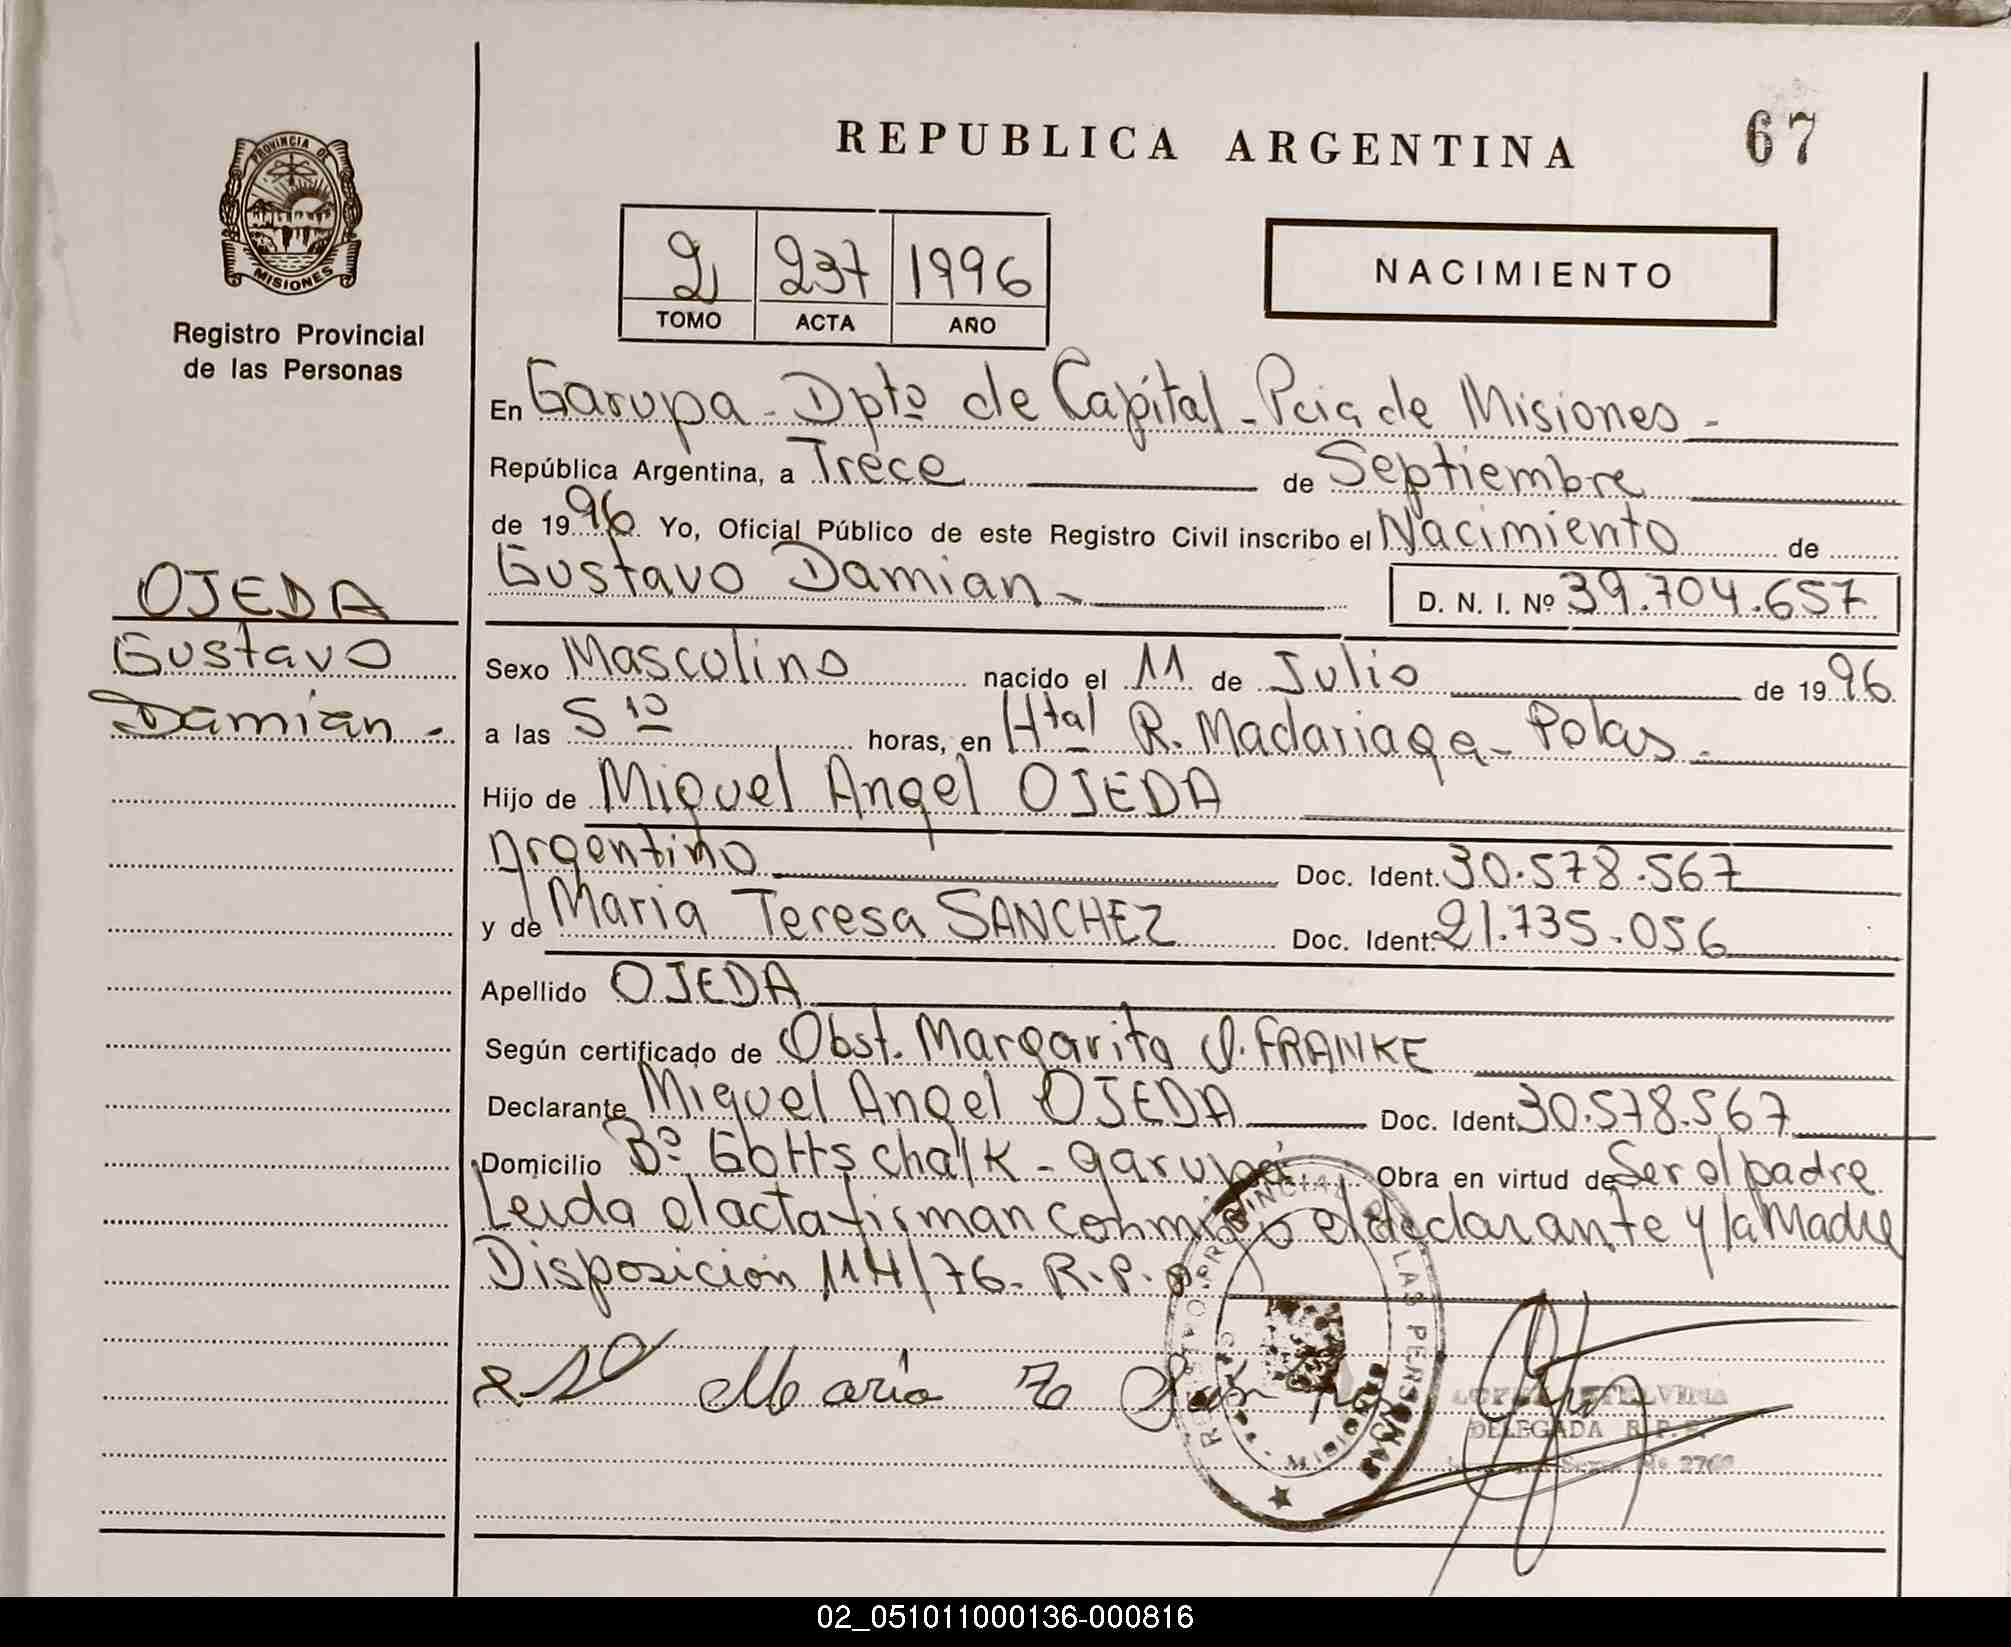 REPUBLICA ARGENTINA
67
PROVINCIA DE
MISIONES
Registro Provincial
de las Personas
2 237 1996
TOMO ACTA AÑO
NACIMIENTO
En Garupa - Dpto de Capital - Pcia de Misiones -
República Argentina, a Trece de Septiembre
de 1996 Yo, Oficial Público de este Registro Civil inscribo el Nacimiento de
Gustavo Damian - D. N. I. Nº 39.704.657
OJEDA
Gustavo
Damian -
Sexo Masculino nacido el 11 de Julio de 1996
a las 5 10 horas, en Htal R. Madariaga - Pdas -
Hijo de Miguel Angel OJEDA
Argentino Doc. Ident. 30.578.567
y de Maria Teresa SANCHEZ Doc. Ident. 21.735.056
Apellido OJEDA
Según certificado de Obst. Margarita J. FRANKE
Declarante Miguel Angel OJEDA Doc. Ident. 30.578.567
Domicilio Bº Gottschalk - Garupá Obra en virtud de Ser el padre
Leida el acta firman conmigo el declarante y la Madre
Disposición 114/76 - R.P.P.
Maria T
DELEGADA R.P.P.
02_051011000136-000816